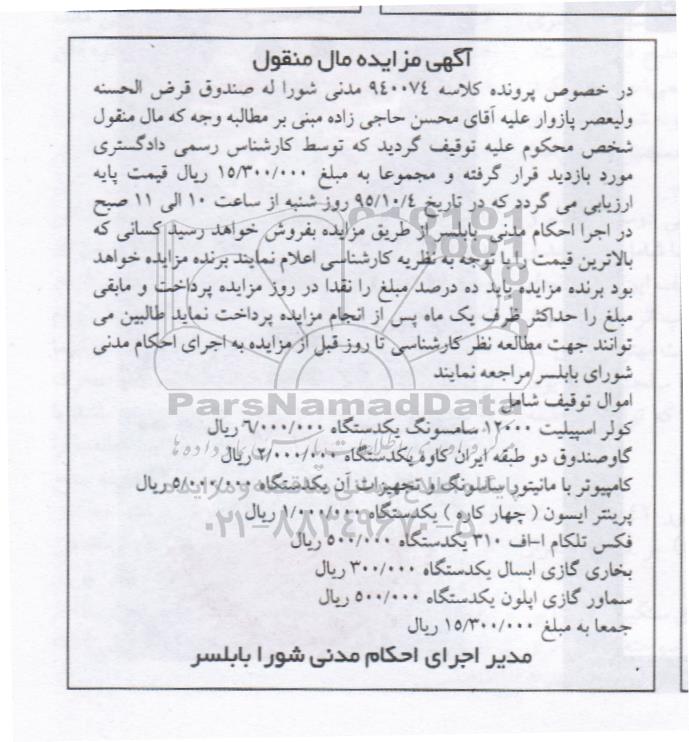 آگهی مزایده مال منقول
در خصوص پرونده کلاسه ۹۴۰۰۷۴ مدنی شورا له صندوق قرض الحسنه
ولیعصر پازوار علیه آقای محسن حاجی زاده مبنی بر مطالبه وجه که مال منقول
شخص محکوم علیه توقیف گردید که توسط کارشناس رسمی دادگستری
مورد بازدید قرار گرفته و مجموعا به مبلغ ۱۵/۳۰۰/۰۰۰ ریال قیمت پایه
ارزیابی می گردد که در تاریخ ۹۵/۱۰/۴ روز شنبه از ساعت ۱۰ الی ۱۱ صبح
در اجرا احکام مدنی بابلسر از طریق مزایده بفروش خواهد رسید کسانی که
بالاترین قیمت را با توجه به نظریه کارشناسی اعلام نمایند برنده مزایده خواهد
بود برنده مزایده باید ده درصد مبلغ را نقدا در روز مزایده پرداخت و مابقی
مبلغ را حداکثر ظرف یک ماه پس از انجام مزایده پرداخت نماید طالبین می
توانند جهت مطالعه نظر کارشناسی تا روز قبل از مزایده به اجرای احکام مدنی
شورای بابلسر مراجعه نمایند
ParsNamadData
اموال توقیف شامل
کولر اسپیلیت ۱۲۰۰۰ سامسونگ یکدستگاه ۶/۰۰۰/۰۰۰ ریال
گاوصندوق دو طبقه ایران کاوه یکدستگاه ۲/۰۰۰/۰۰۰ ریال
کامپیوتر با مانیتور سامسونگ و تجهیزات آن یکدستگاه ۵/۰۰۰/۰۰۰ ریال
پرینتر ایسون ( چهار کاره ) یکدستگاه ۱/۰۰۰/۰۰۰ ریال
۰۲۱-۸۸۳۴۹۶۷۰-۵
فکس تلکام اف ۳۱۰ یکدستگاه ۵۰۰/۰۰۰ ریال
بخاری گازی ابسال یکدستگاه ۳۰۰/۰۰۰ ریال
سماور گازی اپلون یکدستگاه ۵۰۰/۰۰۰ ریال
جمعا به مبلغ ۱۵/۳۰۰/۰۰۰ ریال
مدیر اجرای احکام مدنی شورا بابلسر